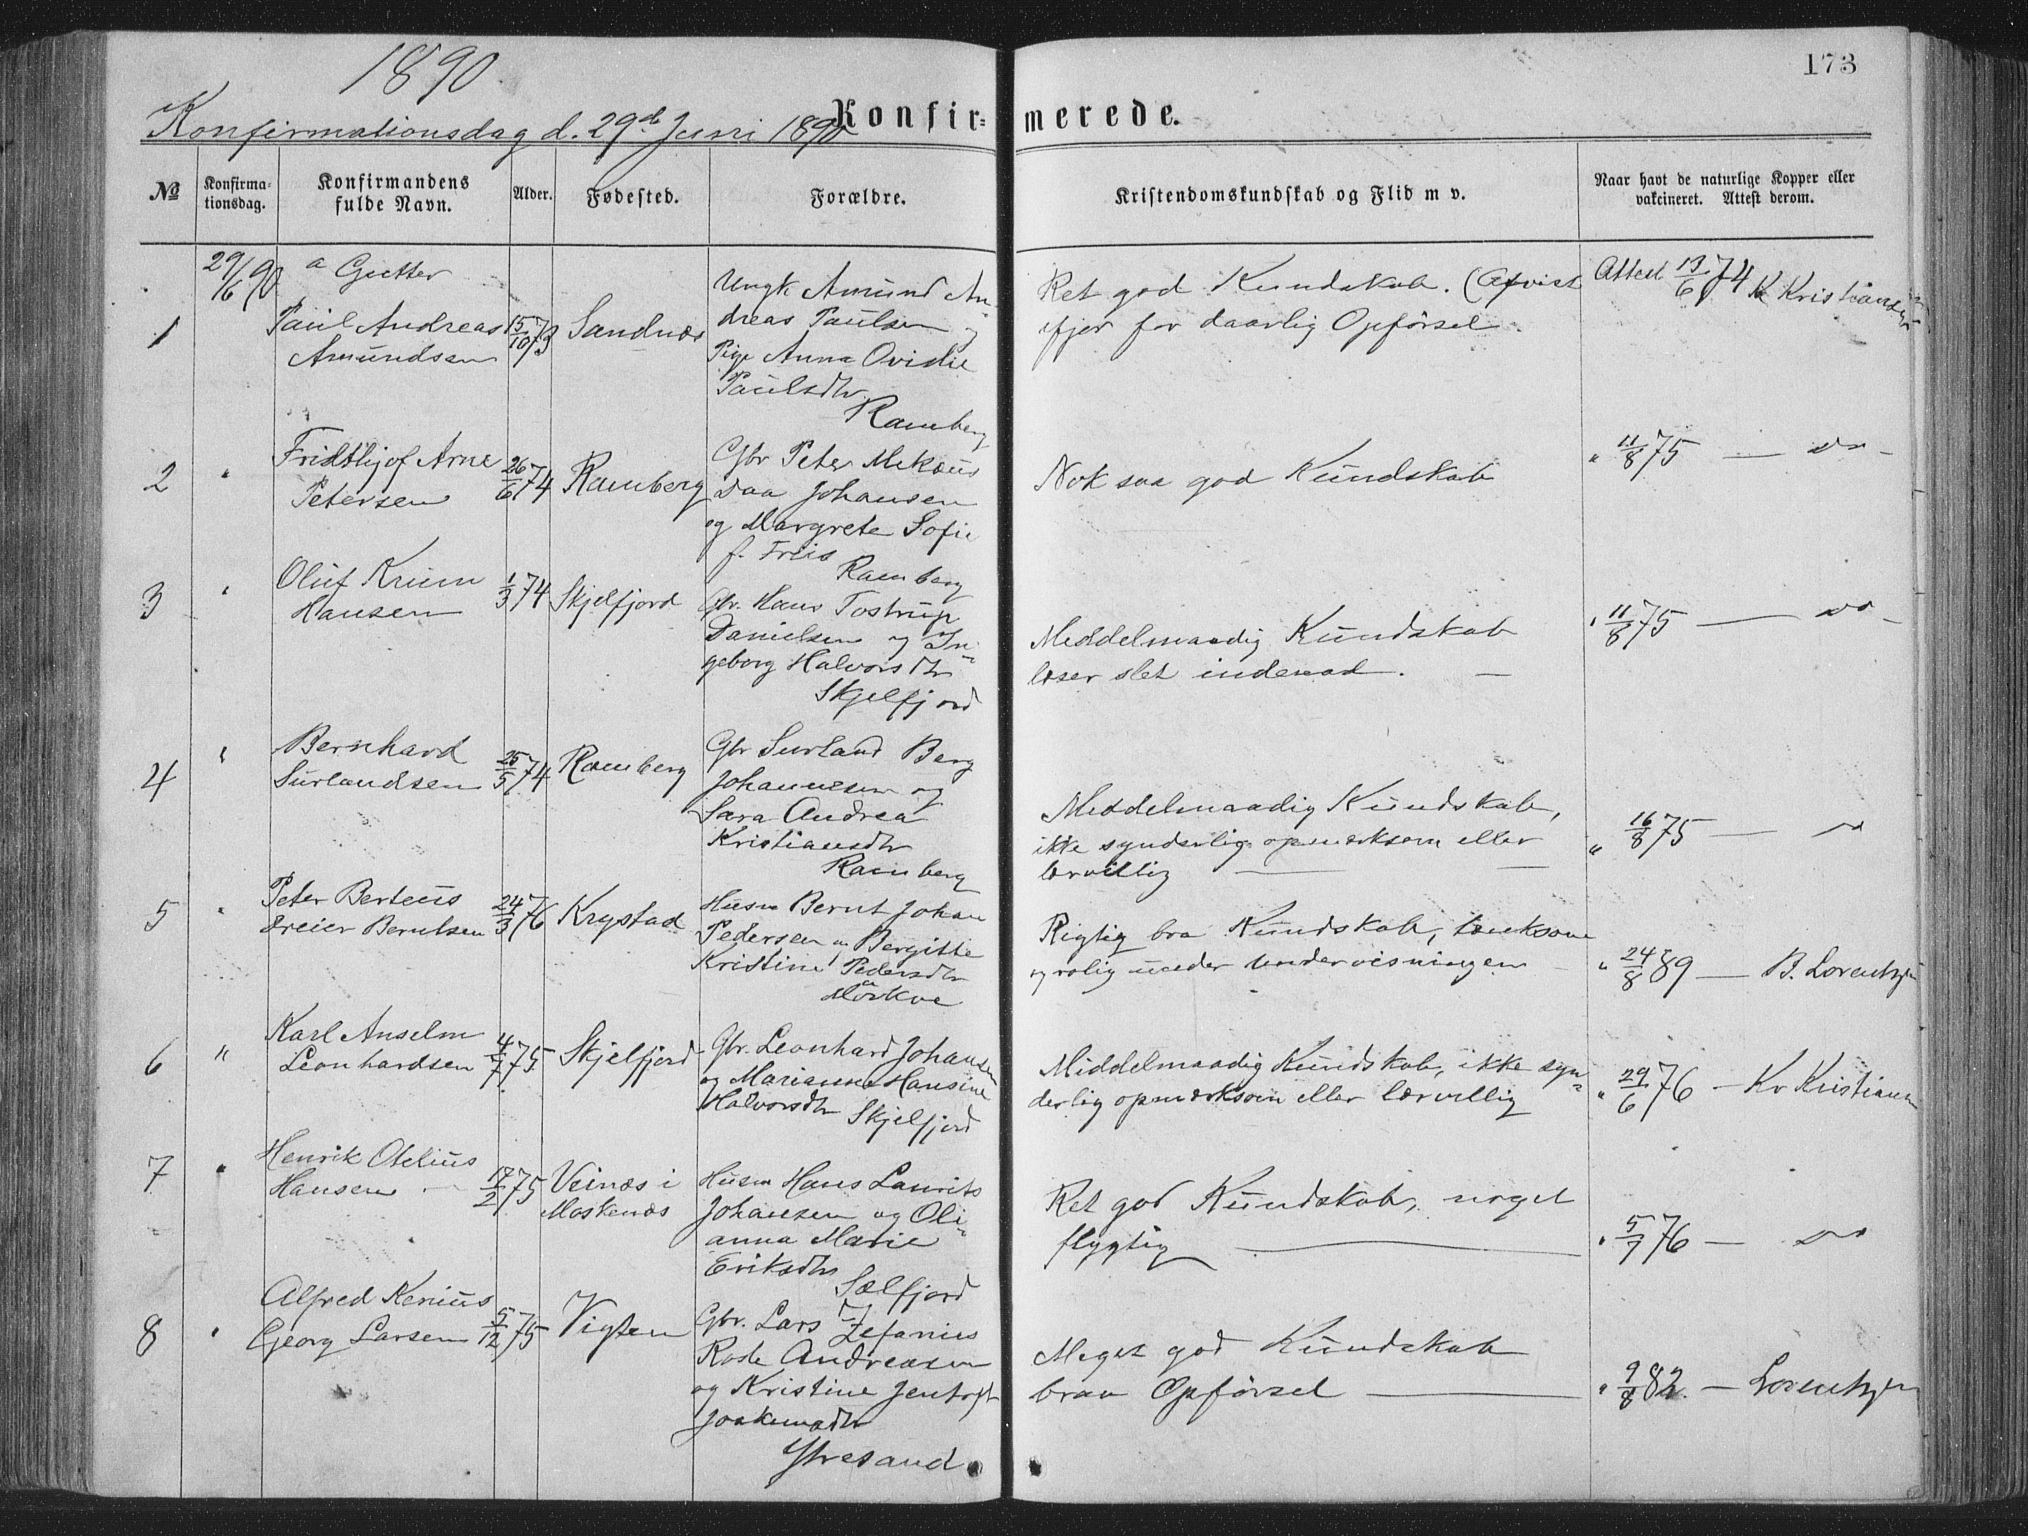 1890
173
Konfirmationsdag d. 29de Juni 1890
Konfir=merede.
№
Konfirma=
tionsdag.
Konfirmandens
fulde Navn.
Alder.
Fødested.
Forældre.
Kristendomskundskab og Flid m v.
Naar havt de naturlige Kopper eller
vakcineret. Attest derom.
29/6 90
a Gutter
1
Paul Andreas
Amundsen
15/10 73
Sandnæs
Ungk Amund An-
dreas Paulsen og
Pige Anna Ovidie
Paulsdtr
Ramberg
Ret god Kundskab. (Afvist
ifjor for daarlig Opførsel.
Attest 19/6 74 K Kristiansen
2
"
Fridthjof Arne
Petersen
26/6 74
Ramberg
Gbr Peter Mekæus
Daa Johansen
og Margrete Sofie
f. Friis
Ramberg
Nok saa god Kundskab
" 11/8 75 — do -
3
"
Oluf Krum
Hansen
1/3 74
Skjelfjord
Gbr. Hans Tostrup
Danielsen og In=
geborg Halvorsdtr
Skjelfjord
Middelmaadig Kundskab
læser slet indenad. —
" 11/8 75 — do -
4
"
Bernhard
Surlandsen
25/5 74
Ramberg
Gbr Surland Berg
Johannesen og
Sara Andrea
Kristiansdtr
Ramberg
Middelmaadig Kundskab,
ikke synderlig opmærksom eller
lærvillig —
" 16/8 75 — do
5
"
Peter Berteus
Dreier Berntsen
24/3 76
Krystad
Husm Bernt Johan
Pedersen og Bergitte
Kristine Pedersdtr
Mørkve
Rigtig bra Kundskab, tænksom
og rolig under Undervisningen —
" 24/8 89 — B. Lorentzen
6
"
Karl Anselm
Leonhardsen
4/7 75
Skjelfjord
Gbr. Leonhard Johansen
og Marianne Hansine
Halvorsdtr
Skjelfjord
Middelmaadig Kundskab, ikke syn=
derlig opmærksom eller lærvillig
" 29/6 76 — Kr Kristiansen
7
"
Henrik Otelius
Hansen —
17/2 75
Veinæs i
Moskenæs
Husm Hans Laurits
Johansen og Oli=
anna Marie
Eriksdtr
Sælfjord
Ret god Kundskab, noget
flygtig —
" 5/7 76 — do
8
"
Alfred Kenius
Georg Larsen
5/12 75
Vigten
Gbr. Lars Zefanius
Rode Andreasen
og Kristine Jentoft
Joakimsdtr
Ytresand
Meget god Kundskab
brav Opførsel —
" 9/8 82. — Lorentzen